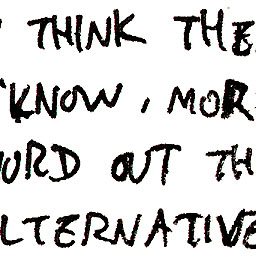 THINK THE
KNOW, MOR
URD OUT TH
LTERNATIVE